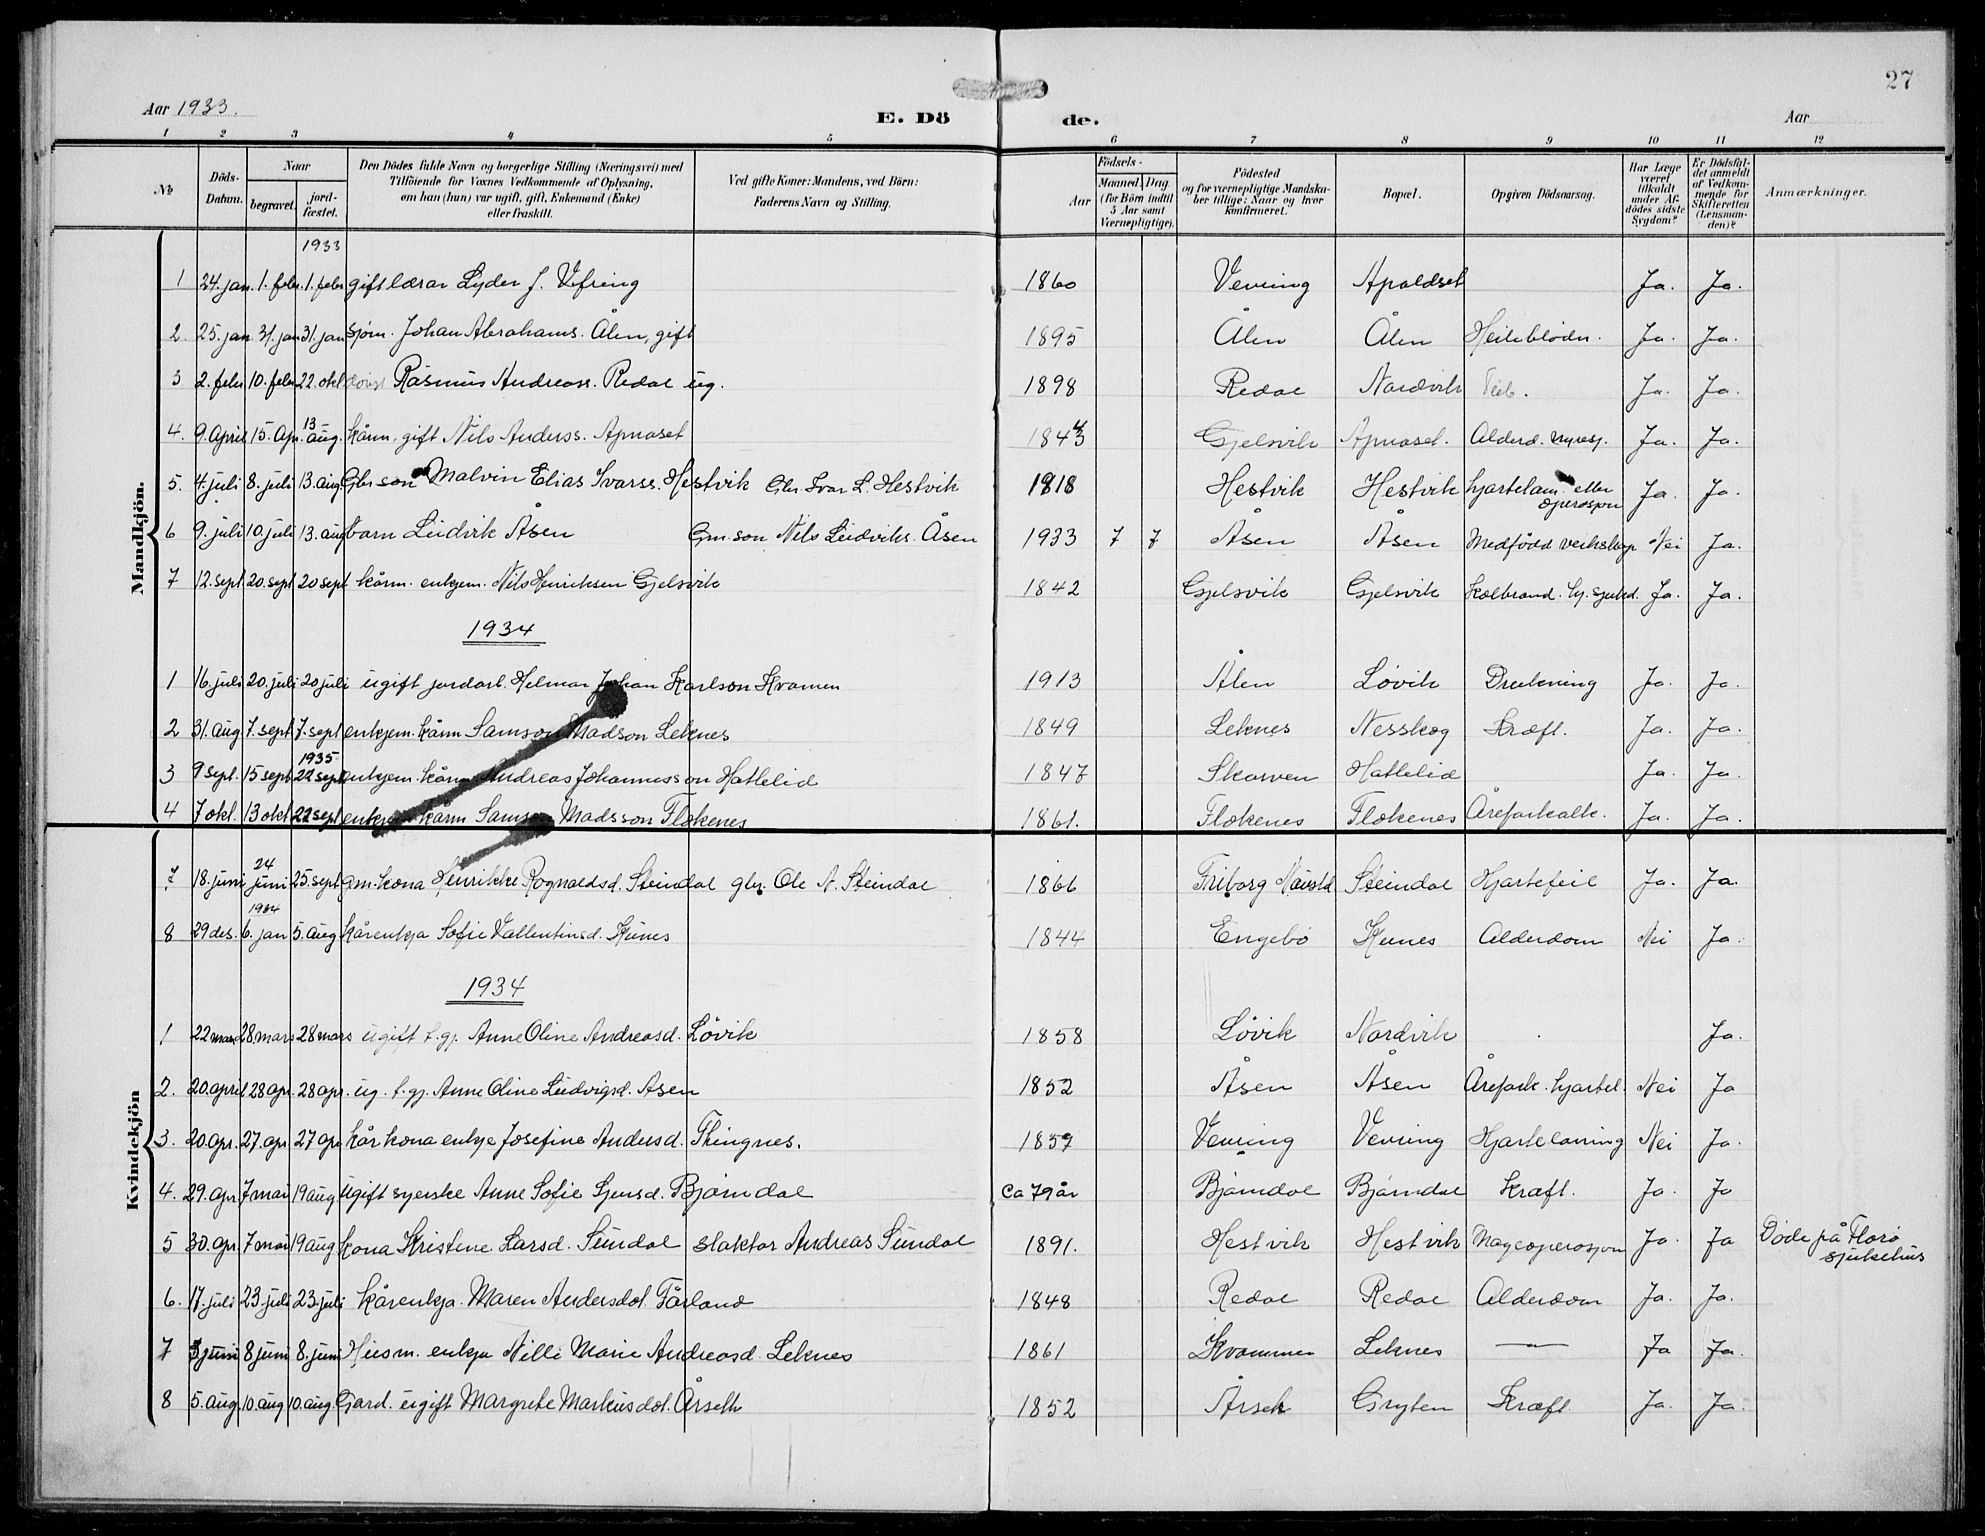 27
Aar 1933.
E. Dö de.
Aar
1 2 3 4 5 6 7 8 9 10 11 12
No
Döds-Datum.
Naar
begravet.
jord-fæstet.
Den Dödes fulde Navn og borgerlige Stilling (Næringsvei) med
Tilföiende for Voxnes Vedkommende af Oplysning,
om han (hun) var ugift, gift, Enkemand (Enke)
eller fraskilt.
Ved gifte Koner: Mandens, ved Börn:
Faderens Navn og Stilling.
Födsels-
Aar
Maaned. Dag
(for Börn indtil
5 Aar samt
Værnepligtige).
Födested
og for værnepligtige Mandska-
ber tillige: Naar og hvor
konfirmeret.
Bopæl.
Opgiven Dödsaarsag.
Har Læge
været
tilkaldt
under Af-
dödes sidste
Sygdom?
Er Dödsfal-
det anmeldt
af Vedkom-
mende for
Skifteretten
(Lensman-
den)?
Anmærkninger.
Mandkjön.
1933
1 24. jan. 1. febr. 1. febr gift lærar Lyder J. Vefring 1860 Vevring Apaldset Ja. Ja.
2. 25. jan. 31. jan 31. jan sjöm. Johan Abrahams. Ålen, gift 1895 Ålen Ålen Heileblödn. Ja. Ja.
3 2. febr 10. febr 22. okt Rasmus Andreass. Redal ug. 1898 Redal Nordvik Ja. Ja.
4. 9. April 15. Apr. 13 aug. kårm, gift Nils Anderss. Apnaset 1843 4 Gjelsvik Apnaset. Alderd. nyresj. Ja. Ja.
5. 4. juli 8. juli 13. aug. Gbr son Malvin Elias Ivarss. Hestvik Gbr. Ivar L. Hestvik 1918 Hestvik Hestvik hjartelam. etter operasjon Ja. Ja.
6 9. juli 10. juli 13. aug barn Ludvik Åsen Gm. son Nils Ludviks. Åsen 1933 7 7 Åsen Åsen Medfödd veikskap Nei Ja.
7 12. sept 20. sept 20 sept kårm. enkjem. Nils Henriksen Gjelsvik 1842 Gjelsvik Gjelsvik Kolbrand. hj. sjukd. Ja. Ja.
1934
1 16. juli 20. juli 20 juli ugift jordarb. Helmar Johan Karlson Kvamen 1913 Ålen Lövik Drukning Ja. Ja.
2 31. aug 7. sept 7. sept enkjem. kårm Samson Madson Leknes 1849 Leknes Nesskog Kræft. Ja. Ja.
1935
3 9 sept. 15 sept 22 sept enkjem. kårm Andreas Johannesson Hattelid 1847 Skorven Hattelid Ja. Ja.
4 7 okt. 13 okt 22 sept enkjem kårm Samson Madsson Flokenes 1861. Flokenes Flokenes Åreforkalk. Ja. Ja.
Kvindekjön
7 18. juni 24 juni 25. sept gm. kona Henrikke Rognaldsd. Steindal gbr. Ole A. Steindal 1866 Friborg Naustd Steindal Hjartefeil Ja. Ja.
1934
8 29 des. 6. jan 5. aug kårenkja Sofie Vallentinsd. Kunes 1844 Engebö Kunes Alderdom Nei Ja.
1934
1 22 mars 28. mars 28 mars ugift f.gj. Anne Oline Andreasd. Lövik 1858 Lövik Nordvik Ja.
2. 20. april 28 apr. 28 apr. ug. f.gj. Anne Oline Ludvigsd. Åsen 1852 Åsen Åsen Årefork. hjartel. Nei Ja
3. 20. apr. 27. apr 27 apr kår kona enkje Josefine Andersd. Thingnes. 1857 Vevring Vevring Hjartelaming Nei Ja.
4. 29. apr. 7 mai 19 aug ugift syerske Anne Sofie Gjensd. Bjørndal Ca 79 år Bjørndal Bjørndal Kræft. Ja. Ja
5 30. apr. 7 mai 19 aug kona Kristene Larsd. Sundal slaktar Andreas Sundal 1891. Hestvik Hestvik Mageoperasjon Ja. Ja Döde på Florö sjukehus
6. 17. juli 23. juli 23. juli kårenkja. Maren Andersdot. Fårland 1848 Redal Redal Alderdom Ja. Ja.
7 3 juni 8 juni 8. juni Husm. enkja Nille Marie Andreasd. Leknes 1861 Kvammen Leknes — " — Ja Ja.
8 5. aug. 10. aug 10. aug. Gard. ugift Margrete Markusdot. Årseth 1852 Årseth Gryten Kræft. Ja. Ja.